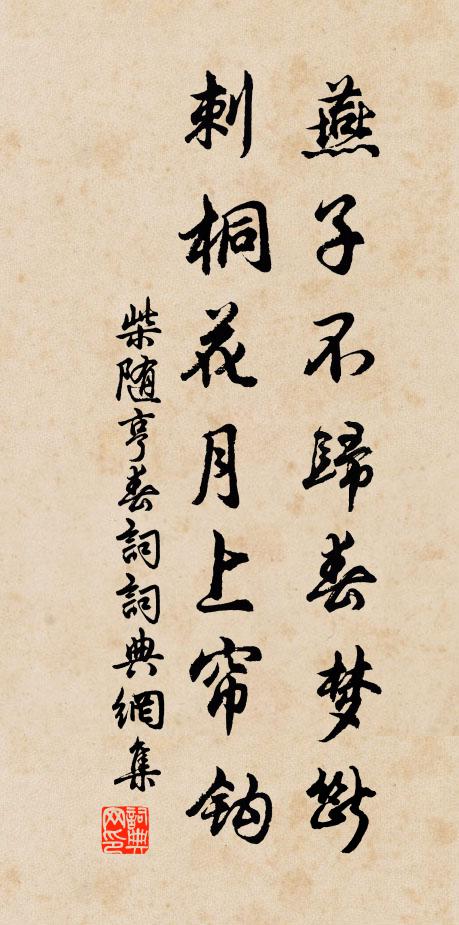 燕子不歸春梦斷
刺桐花月上帘鈎
柴随亨春詞詞典網集
詞典网印